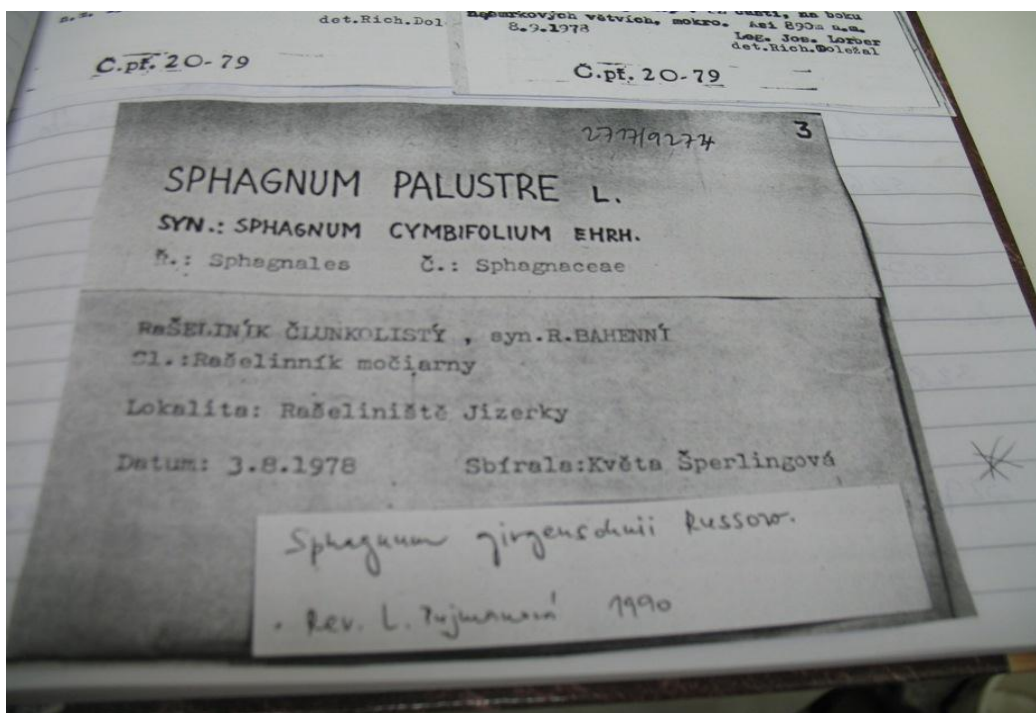 det.Rich.Dol
větvích, mokro. Asi 890m n.m.
8.9.1978
Leg. Jos. Lorber
det.Rich.Doležal
Č.př. 20-79
Č.př. 20-79
2717/9274
3
SPHAGNUM PALUSTRE L.
SYN.: SPHAGNUM CYMBIFOLIUM EHRH.
Ř.: Sphagnales Č.: Sphagnaceae
RaŠELINÍK ČLUNKOLISTÝ , syn.R.BAHENNÍ
Sl.:Rašelinník močiarny
Lokalita: Rašeliniště Jizerky
Datum: 3.8.1978 Sbírala:Květa Šperlingová
Sphagnum girgensohnii Russow.
Rev. L. 1990